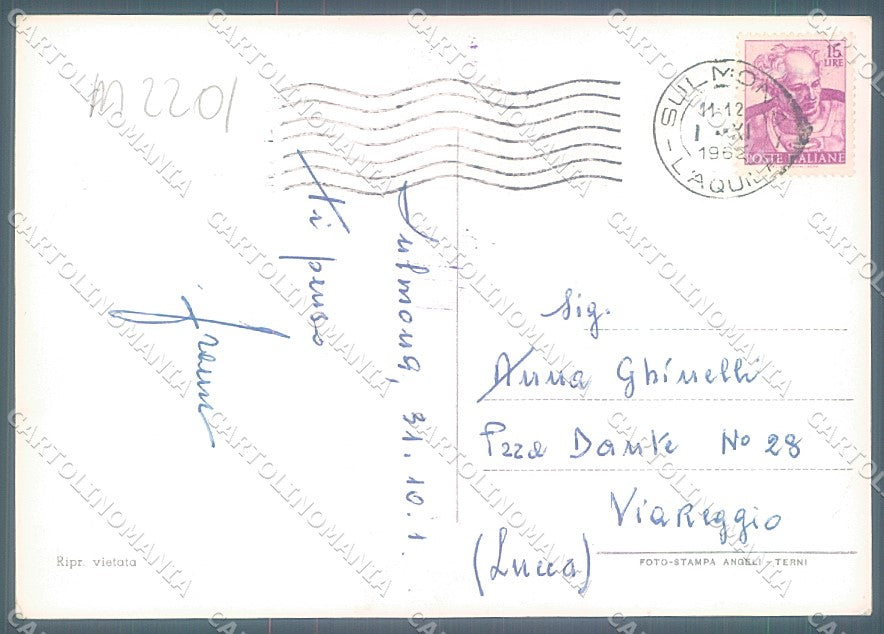 M 2201
15
LIRE
POSTE ITALIANE
SULMONA
11-12
1 XI
L'AQUILA
Sulmona, 31.10.1
ti penso
Sig.
Anna Ghinelli
Pzza Dante No 28
Viareggio
(Lucca)
Ripr. vietata
FOTO-STAMPA ANGELI - TERNI
CARTOLINOMANIA